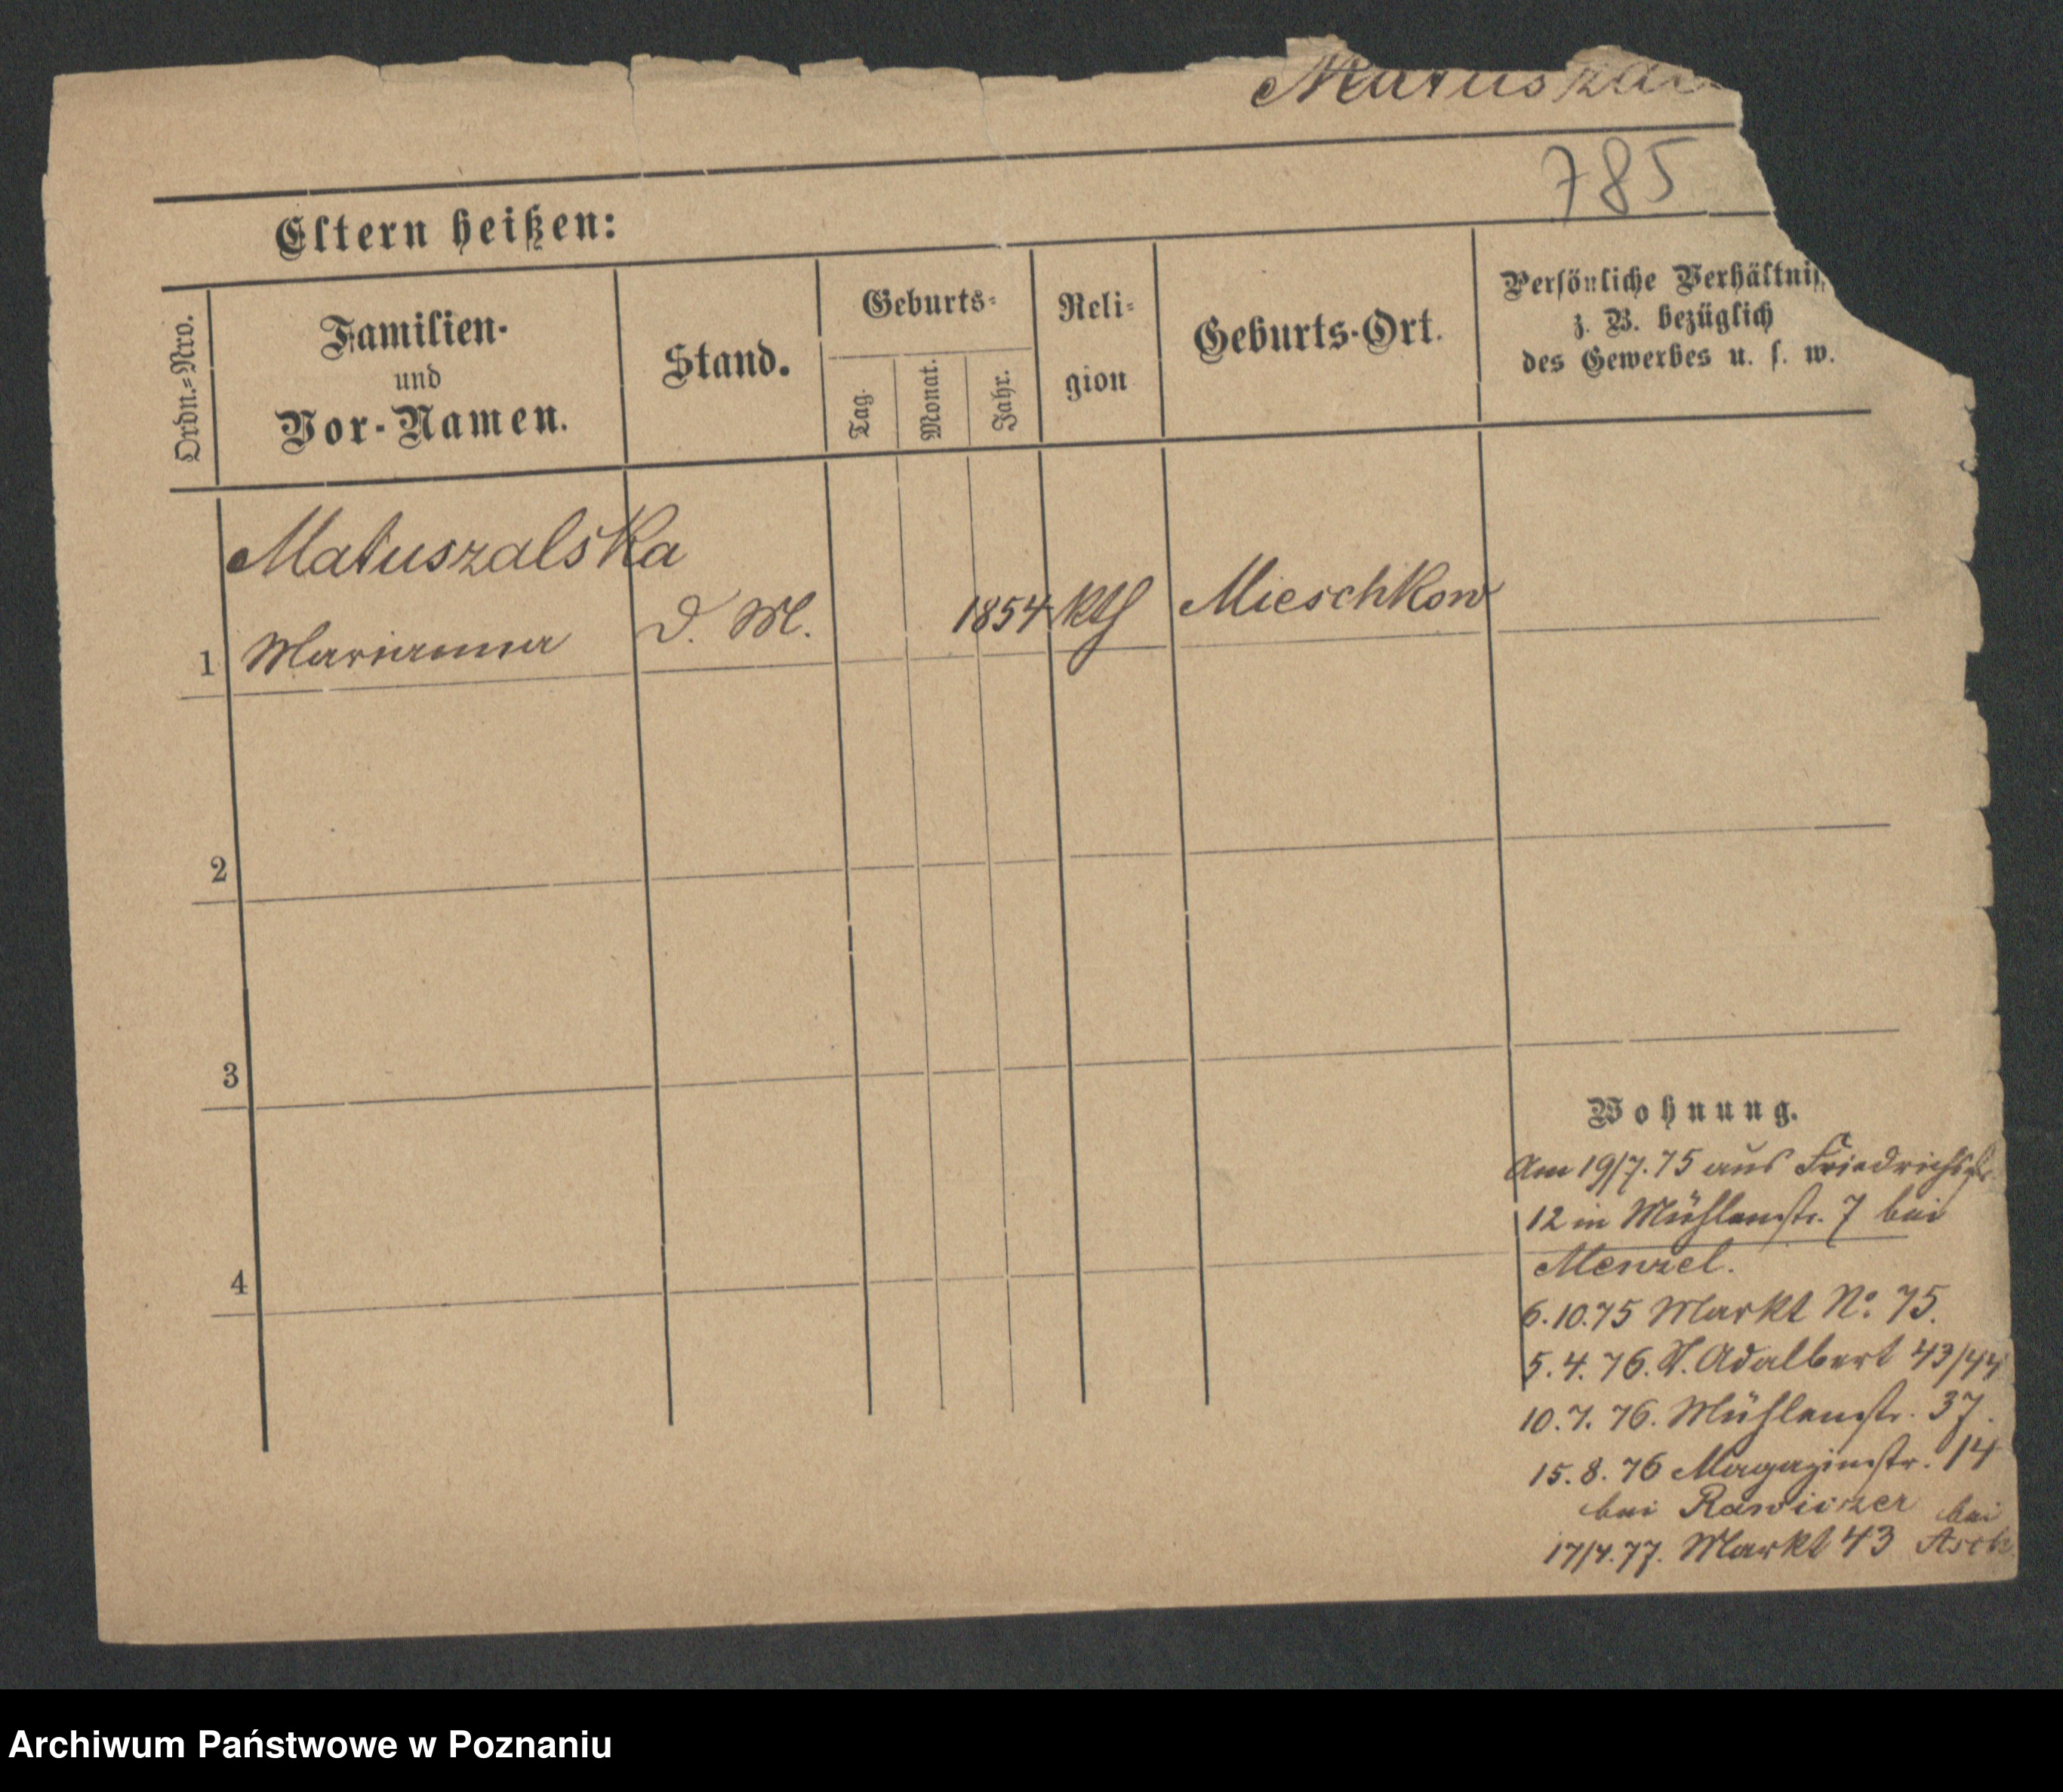 Matuszal
785
Eltern heißen:
Ordn.-Nro.
Familien-
und
Vor-Namen.
Stand.
Geburts-
Tag.
Monat.
Jahr.
Reli-
gion
Geburts-Ort.
Persönliche Verhältnis
z. B. bezüglich
des Gewerbes u. s. w.
Matuszalska
1 Marianna D. M. 1854 kth Mieschkow
2
3
4
Wohnung.
Am 19/7.75 aus Friedrichstr.
12 in Mühlenstr. 7 bei
Menzel.
6.10.75 Markt No. 75.
5.4.76. St. Adalbert 43/44
10.7.76. Mühlenstr. 37.
15.8.76 Magazinstr. 14
bei Rawiczer
17/4.77. Markt 43 bei
Asch
Archiwum Państwowe w Poznaniu